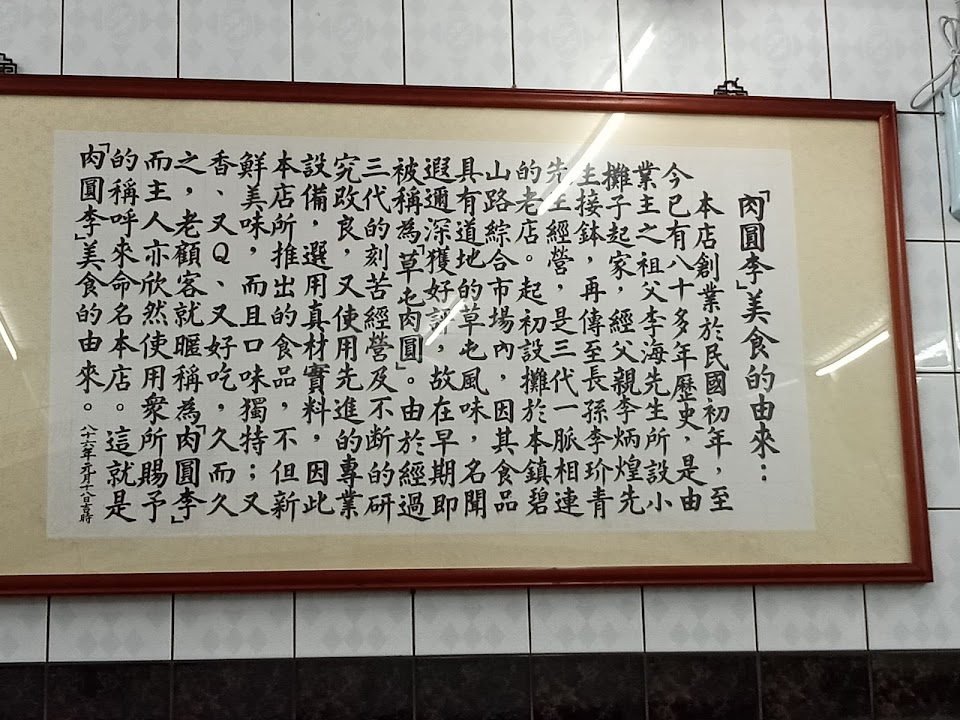 「肉圓李」美食的由來：
本店創業於民國初年，至
今已有八十多年歷史，是由
業主之祖父李海先生所設小
攤子起家，經父親李炳煌先
生接缽，再傳至長孫李玠青
先生經營，是三代一脈相連
的老店。起初設攤於本鎮碧
山路綜合市場內，因其食品
具有道地的草屯風味，名聞
遐邇深獲好評，故在早期即
被稱為「草屯肉圓」。由於經過
三代的刻苦經營及不斷的研
究改良，又使用先進的專業
設備，選用真材實料。因此
本店所推出的食品，不但新
鮮美味，而且口味獨特；又
香、又Q、又好吃，久而久
之，老顧客就暱稱為「肉圓李」
而主人亦欣然使用眾所賜予
的稱呼來命名本店。這就是
「肉圓李」美食的由來。
八十六年元月十八日吉時